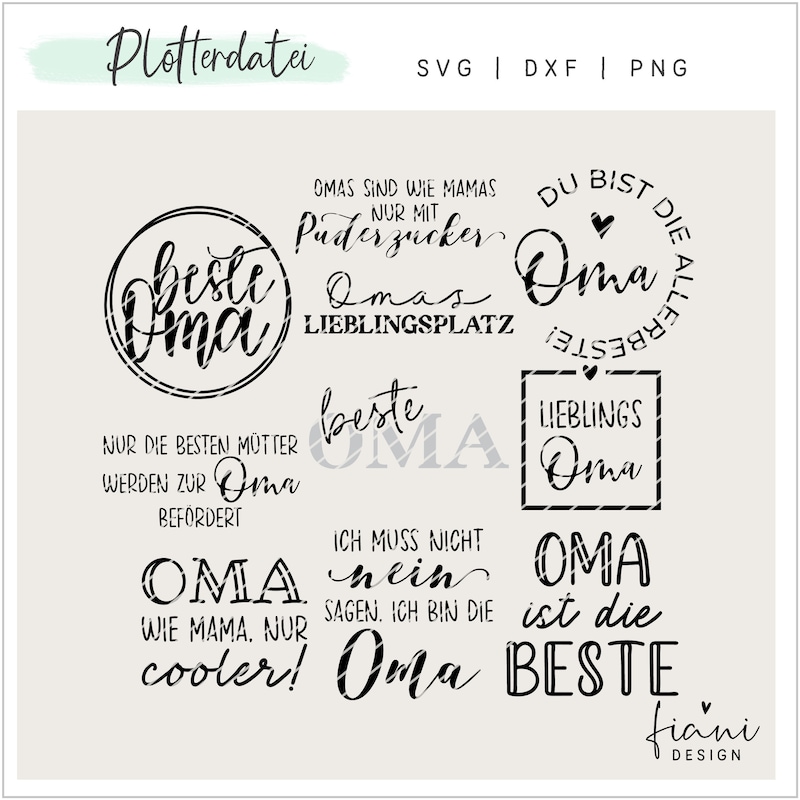 Plotterdatei
SVG | DXF | PNG
beste
Oma
OMAS SIND WIE MAMAS
NUR MIT
Puderzucker
DU BIST DIE ALLERBESTE!
Oma
Omas
LIEBLINGSPLATZ
beste
OMA
LIEBLINGS
Oma
NUR DIE BESTEN MÜTTER
WERDEN ZUR Oma
BEFÖRDERT
OMA
WIE MAMA, NUR
cooler!
ICH MUSS NICHT
nein
SAGEN, ICH BIN DIE
Oma
OMA
ist die
BESTE
fiani
DESIGN